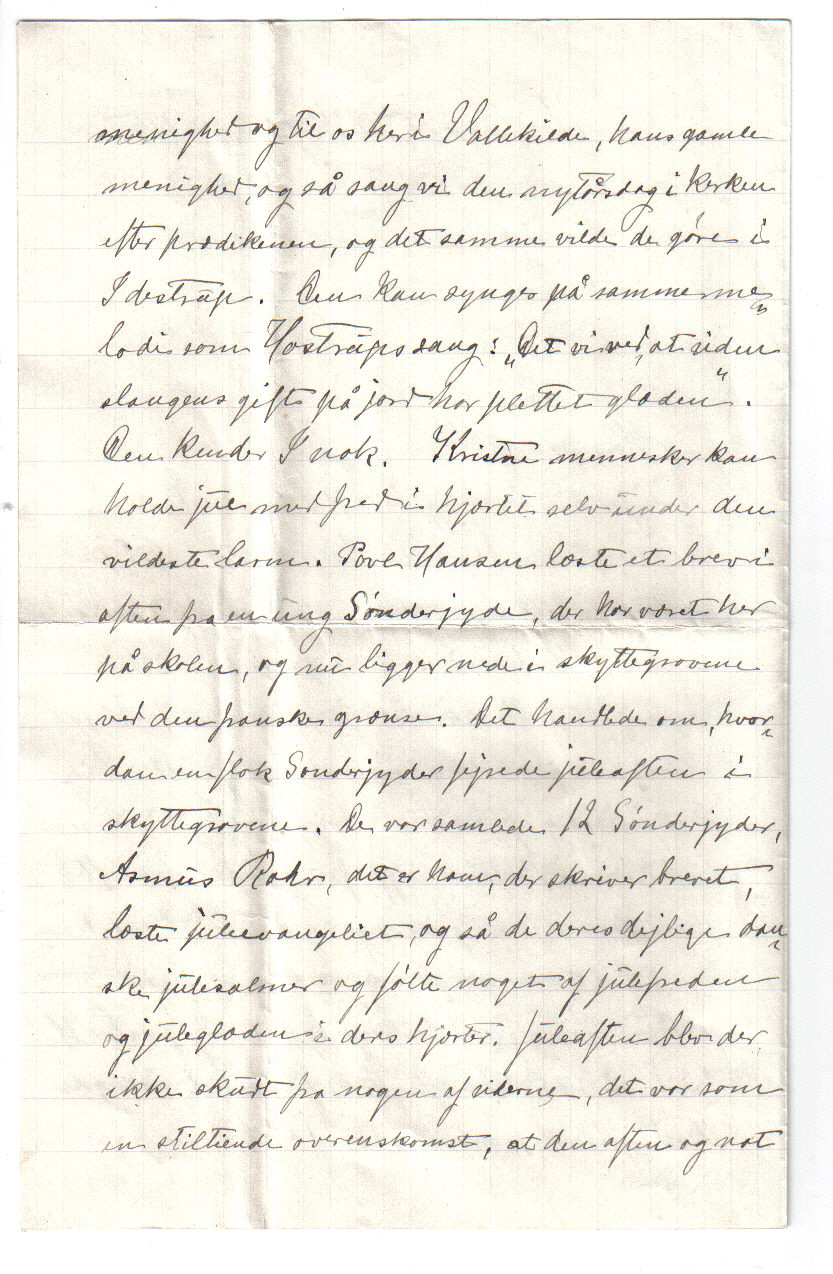 menighed og til os her i Vallekilde, hans gamle
menighed, og så sang vi den nytårsdag i kerken
efter prædikenen, og det samme vilde de gøre i
Idestrup. Den kan synges på samme me=
lodi som Hostrups sang: „Det vi ved, at uden
slangens gift på jord har plettet glæden".
Den kender I nok. Kristne mennesker kan
holde jul med fred i hjærtet selv under den
vildeste larm. Povl Hansen læste et brev i
aften fra en ung Sønderjyde, der har været her
på skolen, og nu ligger nede i skyttegravene
ved den franske grænse. Det handlede om, hvor=
dan en flok Sønderjyder fejrede juleaften i
skyttegravene. De var samlede 12 Sønderjyder,
Asmus Rohr, det er ham, der skriver brevet,
læste juleevangeliet, og så de deres dejlige dan=
ske julesalmer og følte noget af julefreden
og juleglæden i deres hjærter. Juleaften blev der
ikke skudt fra nogen af siderne, det var som
en stiltiende overenskomst, at den aften og nat